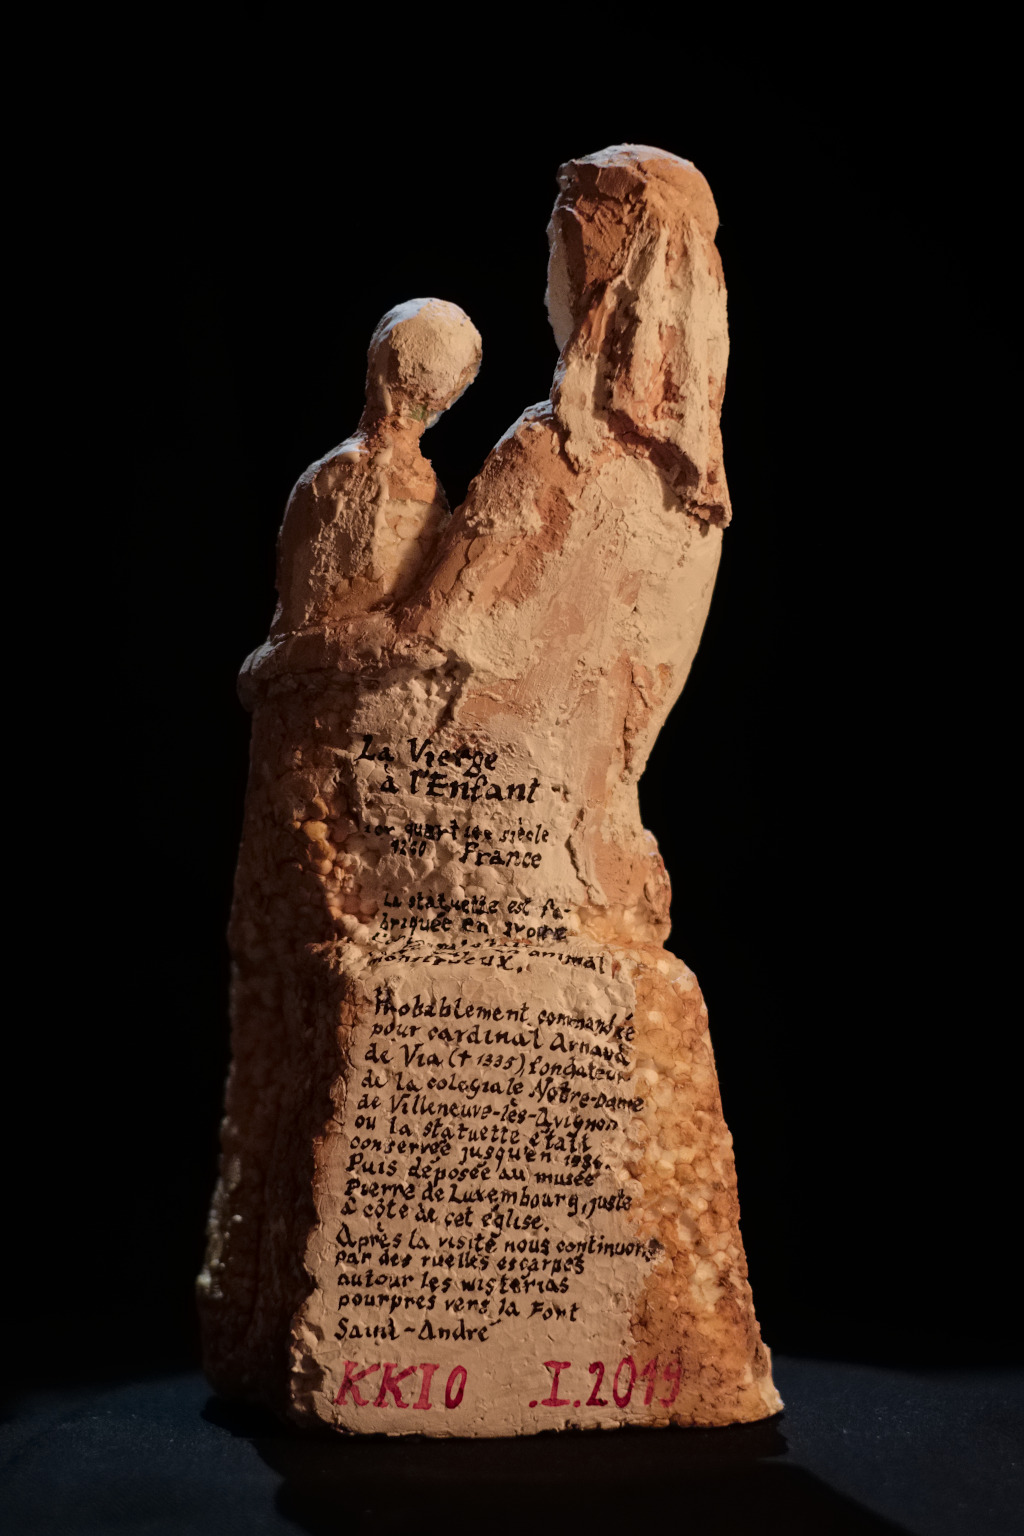 La Vierge
à l'Enfant
quart siècle
1260 France
La statuette est fa-
briquée en ivoire
animal
monstrueux.
Probablement commandée
pour cardinal Arnaud
de Via († 1335), fondateur
de la colegiale Notre-Dame
de Villeneuve-lès-Avignon
ou la statuette était
conservée jusqu'en
Puis déposée au musée
Pierre de Luxembourg, juste
à côté de cet église.
Après la visite nous continuons
par des ruelles escarpes
autour les wisterias
pourpres vers la Fort
Saint-André
KKIO .I.2019